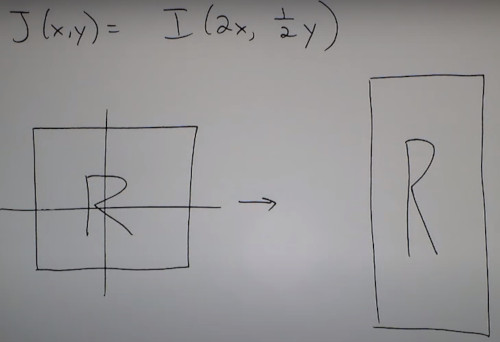 J(x,y) = I(2x, 1/2 y)
R → R